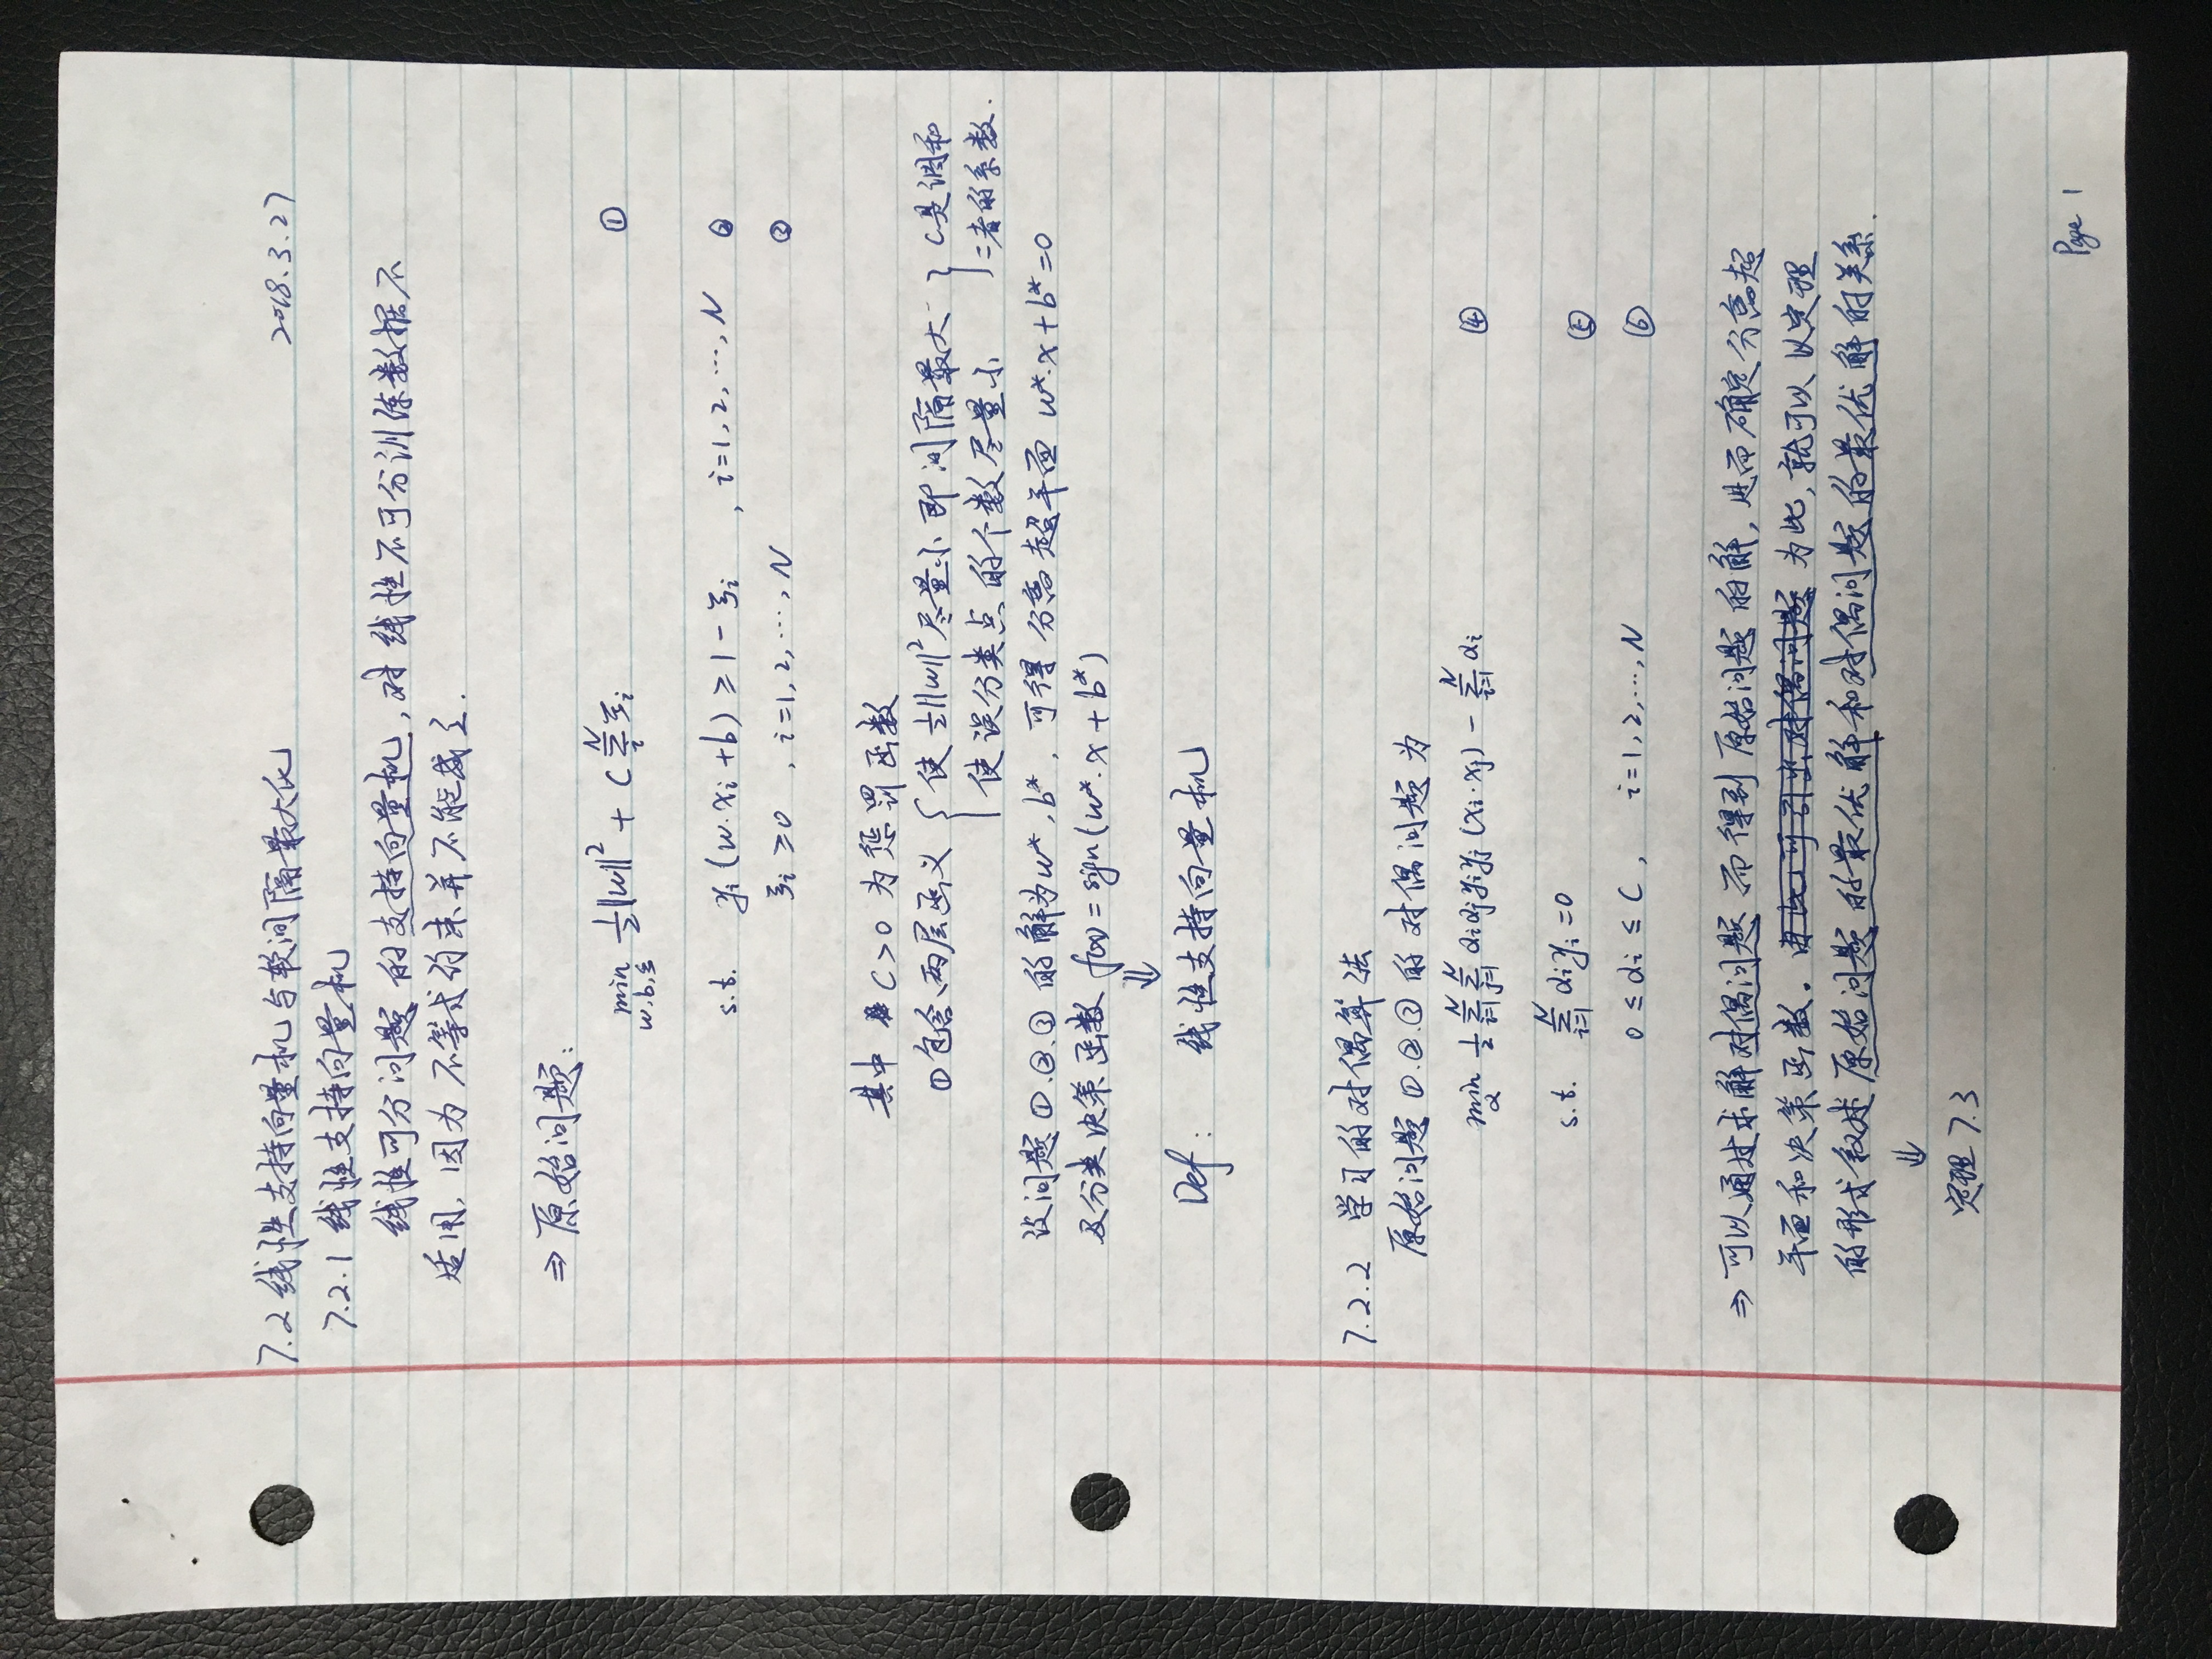 7.2 线性支持向量机与软间隔最大化 2018.3.27
7.2.1 线性支持向量机
线性可分问题的支持向量机，对线性不可分训练数据不
适用，因为不等式约束并不能成立．
⇒ 原始问题：
min w,b,ξ ½||w||² + C Σᴺᵢ ξᵢ ①
s.t. yᵢ(w·xᵢ+b) ≥ 1-ξᵢ , i=1,2,…,N ②
ξᵢ ≥0 , i=1,2,…,N ③
其中 C>0 为惩罚函数
①包含两层函义 { 使½||w||²尽量小即间隔最大 } C是调和
{ 使误分类点的个数尽量小 } 二者的系数.
设问题①.②.③的解为w*, b*, 可得分离超平面 w*·x+b*=0
及分类决策函数 f(x)=sign(w*·x+b*)
⇓
Def: 线性支持向量机
7.2.2 学习的对偶算法
原始问题①.②.③的对偶问题为
min α ½ Σᴺᵢ₌₁ Σᴺⱼ₌₁ αᵢαⱼyᵢyⱼ(xᵢ·xⱼ) - Σᴺᵢ₌₁ αᵢ ④
s.t. Σᴺᵢ₌₁ αᵢyᵢ=0 ⑤
0 ≤ αᵢ ≤ C , i=1,2,…,N ⑥
⇒ 可以通过求解对偶问题而得到原始问题的解，进而确定分离超
平面和决策函数。为此，就可以以定理
的形式叙述原始问题的最优解和对偶问题的最优解的关系
⇓
定理7.3
Page 1